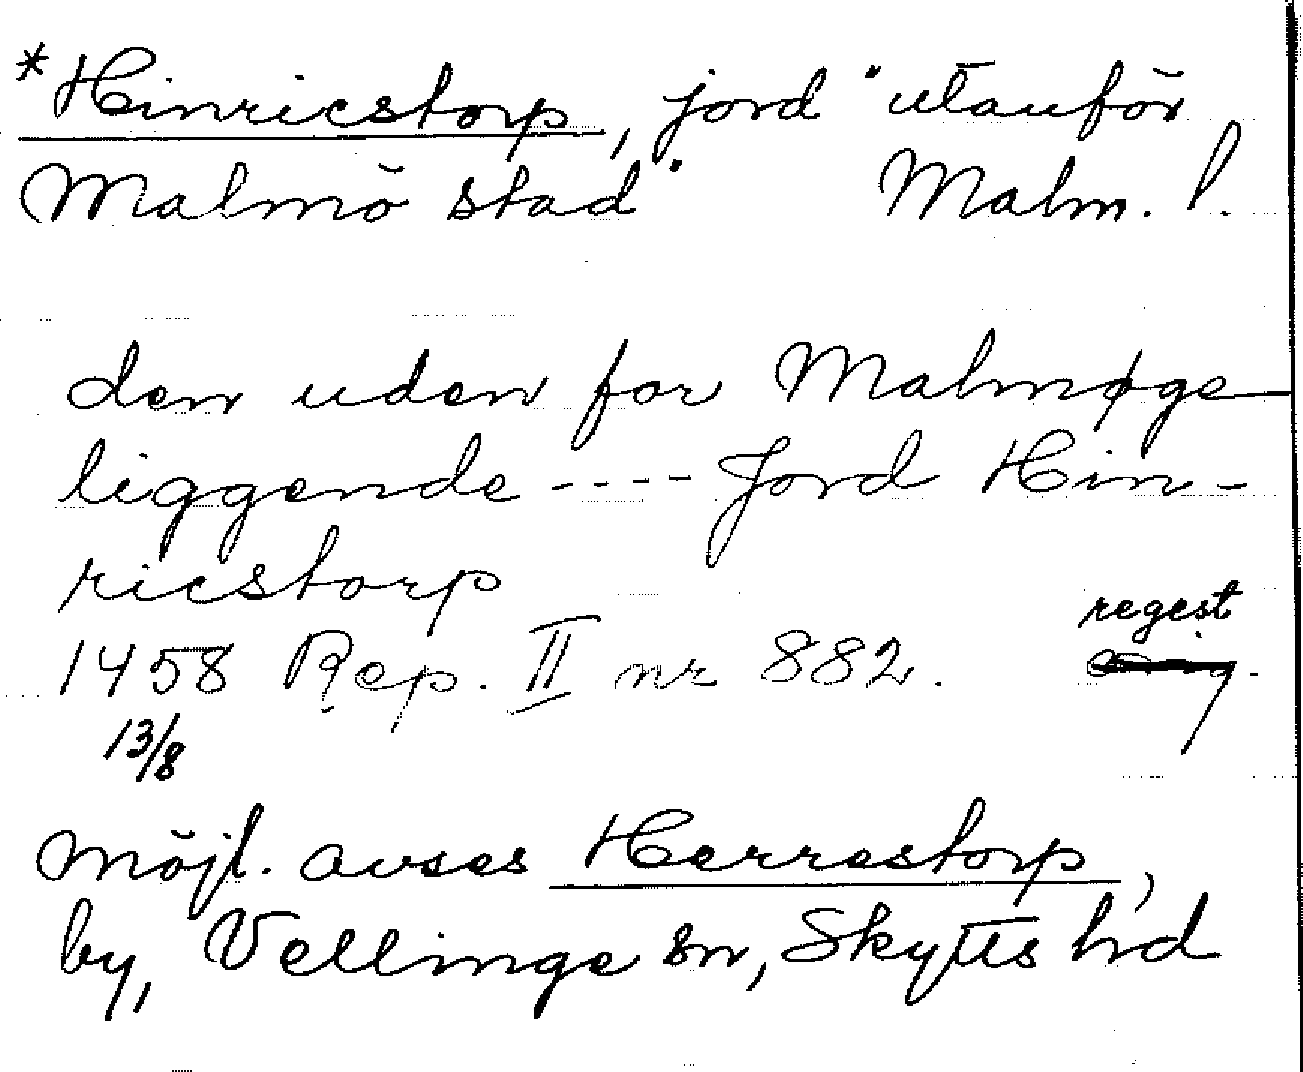 *Hinricstorp, jord "utanför
Malmö stad" Malm. l.
den uden for Malmøge
liggende ---- Jord Hin-
ricstorp
regest
1458 Rep. II nr 882.
13/8
Möjl. avses Herrestorp,
by, Vellinge sn, Skytts hd